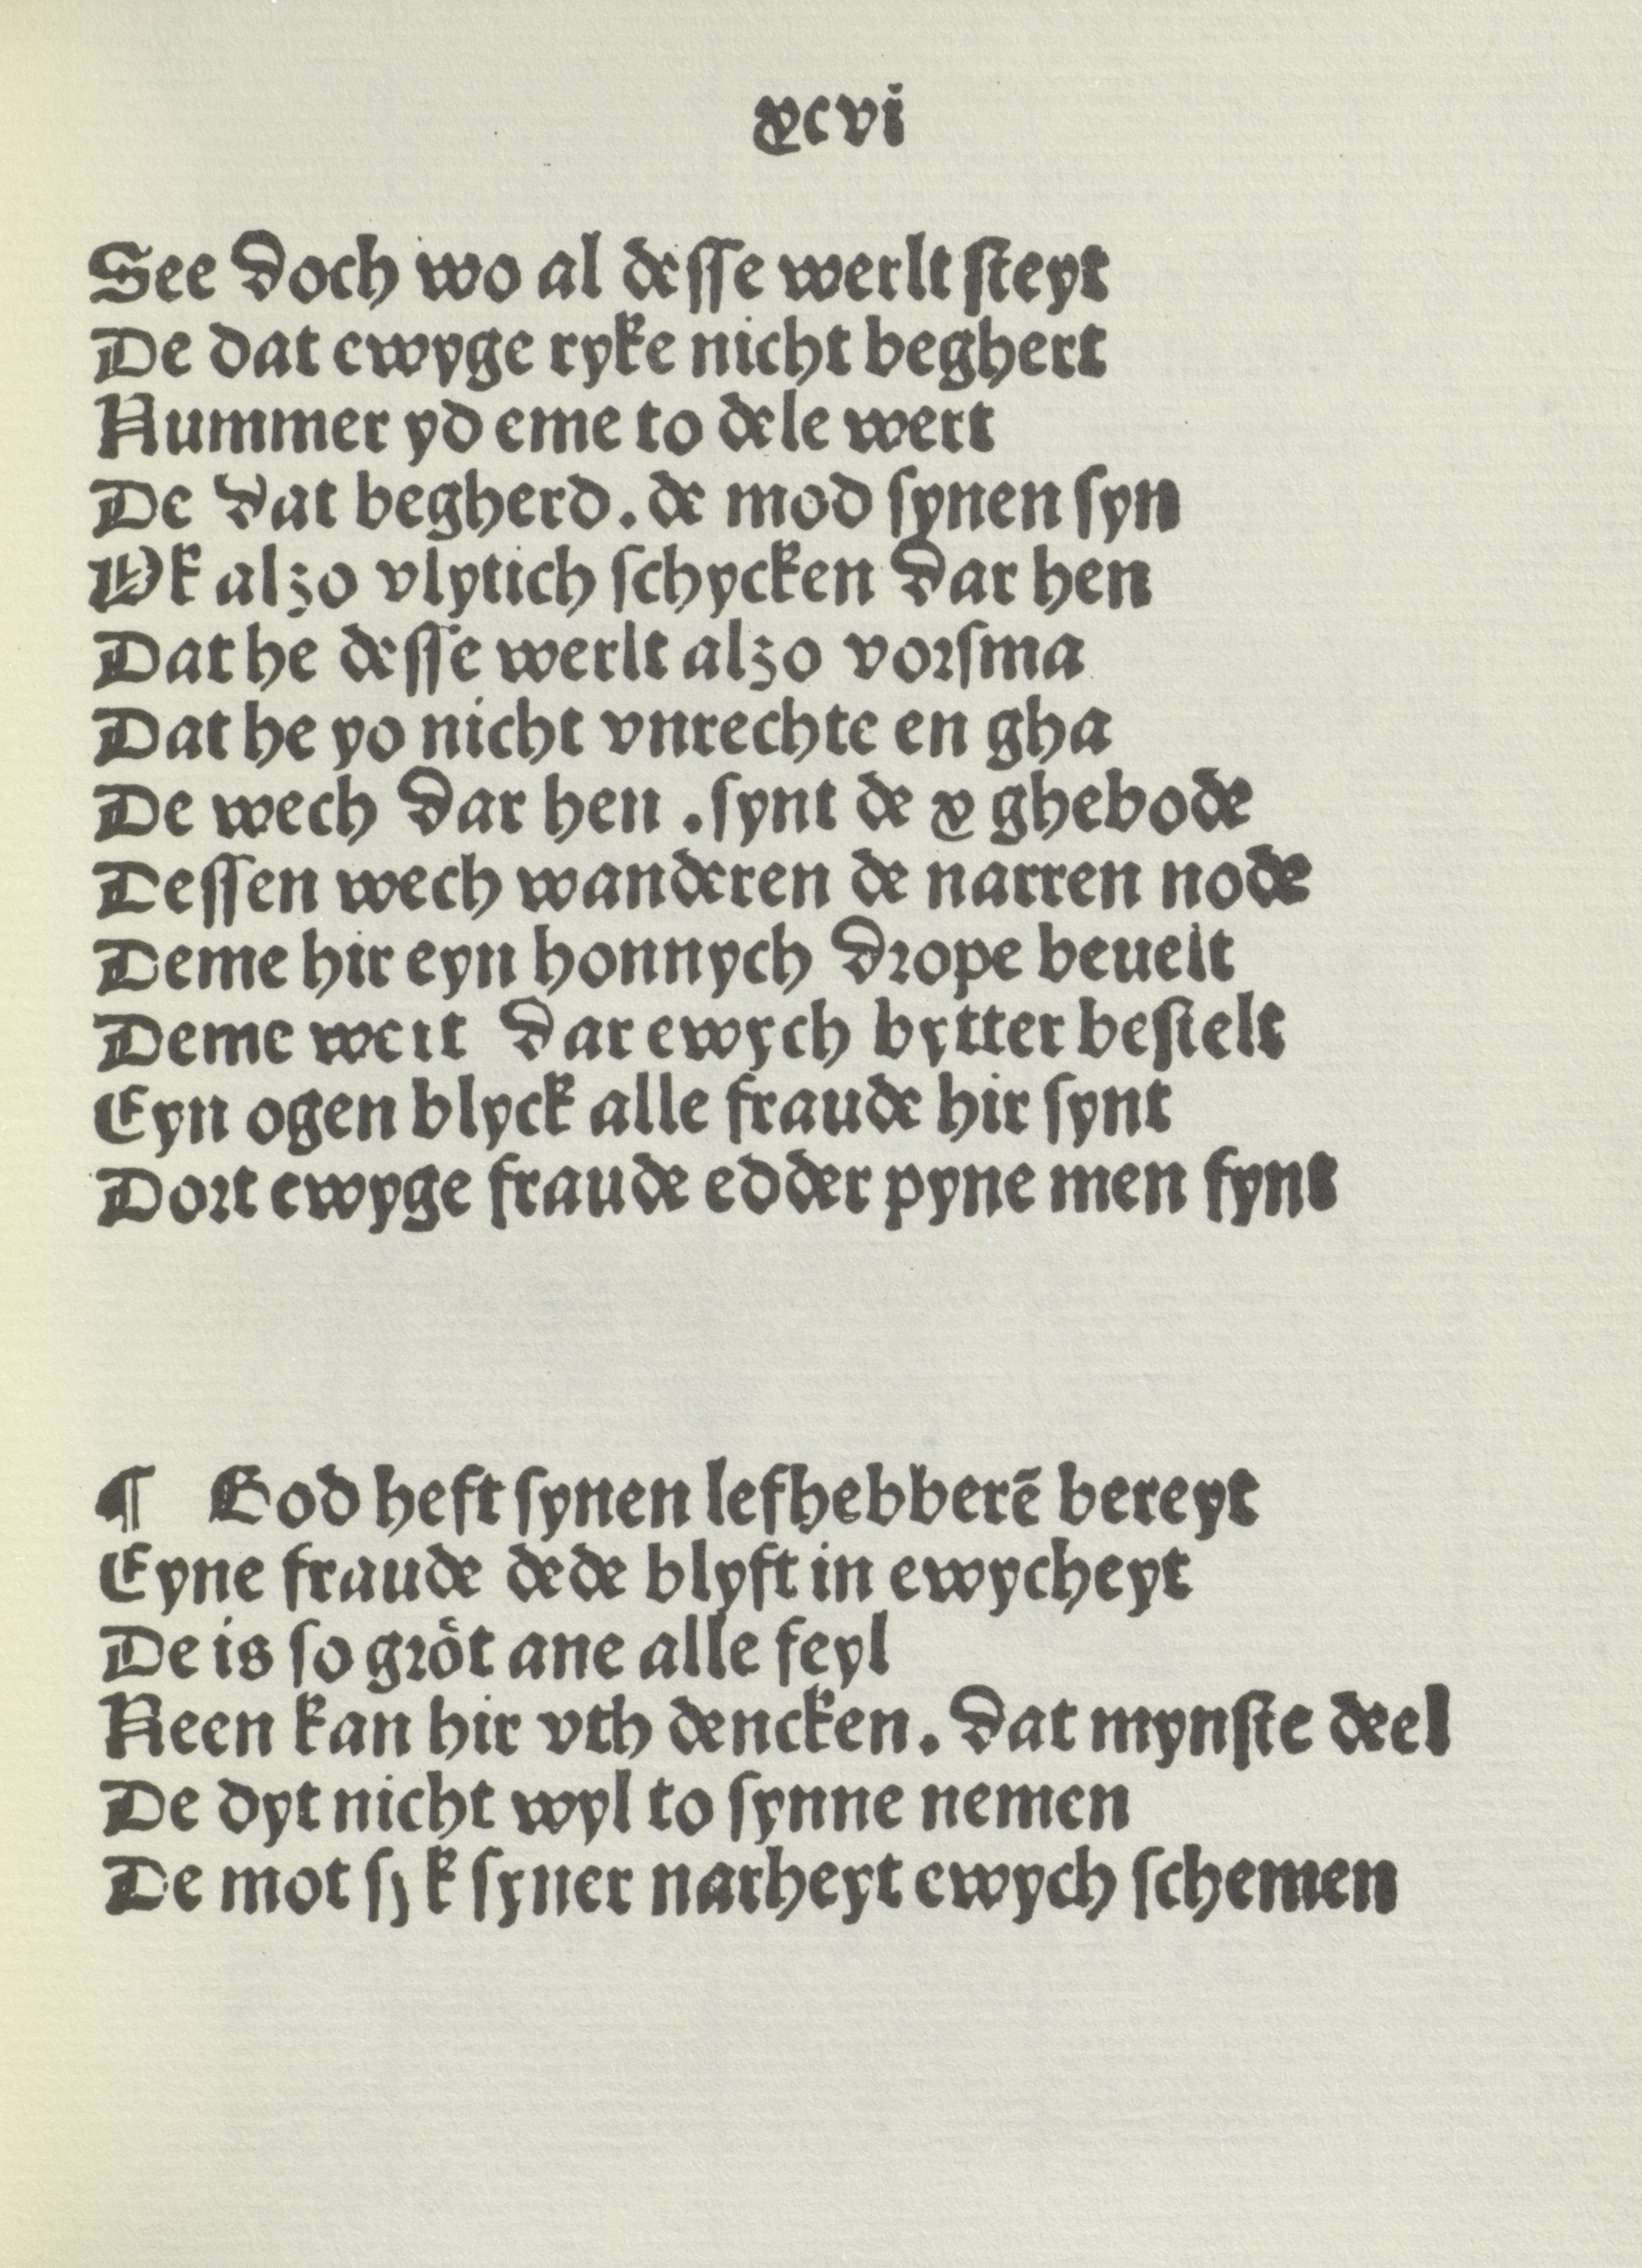 xcvi
See doch wo al desſſe werlt ſteyt
De dat ewyge ryke nicht beghert
Nummer yd eme to dele wert
De dat begherd . de mod ſynen ſyn
Ok alzo vlytich ſchycken dar hen
Dat he deſſe werlt alzo vorſma
Dat he yo nicht vnrechte en gha
De wech dar hen . ſynt de x ghebode
Deſſen wech wanderen de narren node
Deme hir eyn honnych drope beuelt
Deme wert dar ewych bytter beſtelt
Eyn ogen blyck alle fraude hir ſynt
Dort ewyge fraude edder pyne men fynt
¶ God heft ſynen lefhebberē bereyt
Eyne fraude dede blyft in ewycheyt
De is ſo grôt ane alle feyl
Neen kan hir vth dencken . dat mynſte deel
De dyt nicht wyl to ſynne nemen
De mot ſyk ſyner narheyt ewych ſchemen